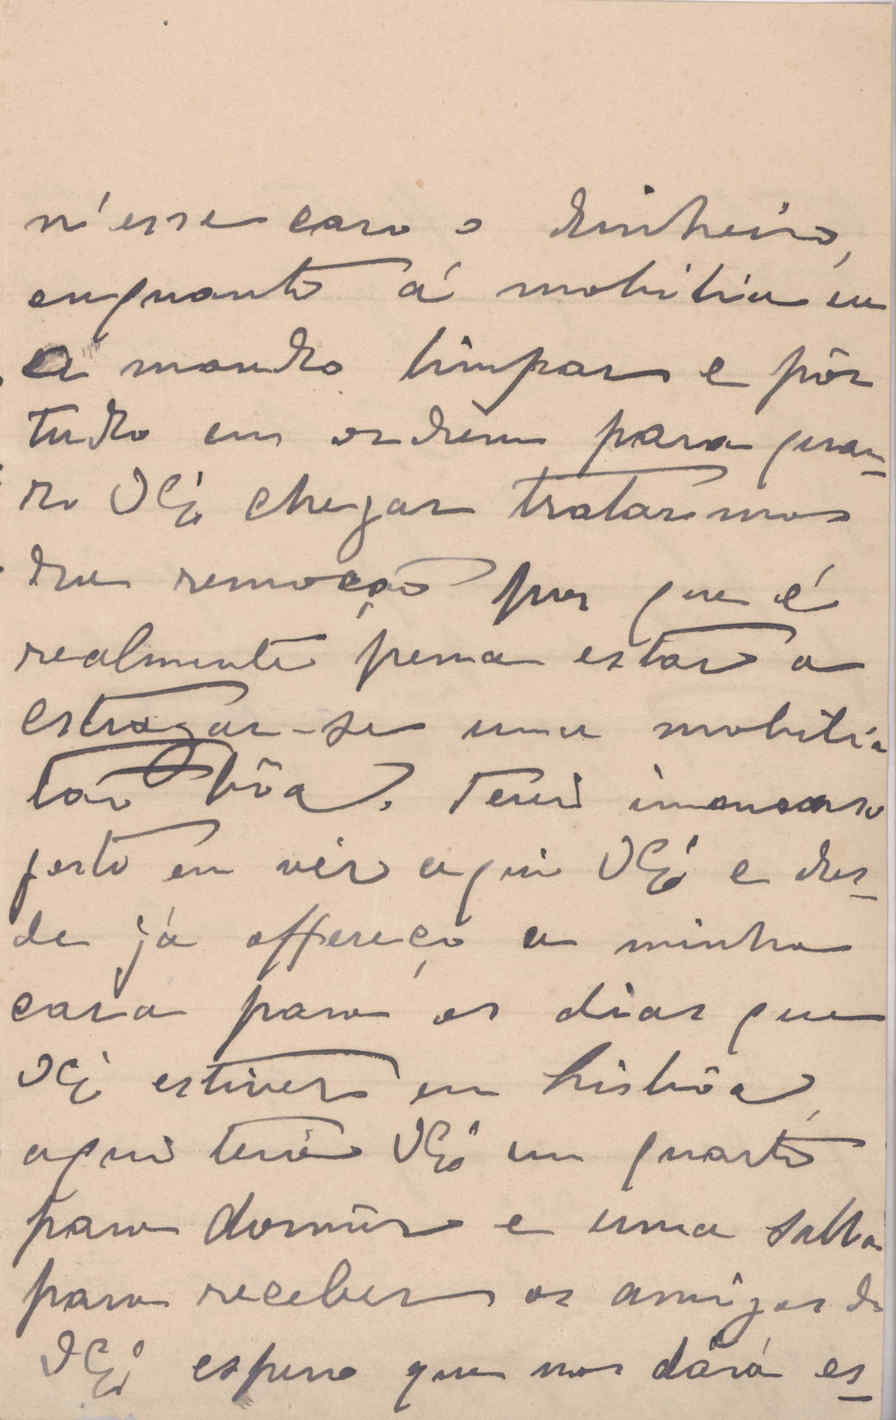 n'esse caso o dinheiro,
enquanto á mobilia eu
a mando limpar e pôr
tudo em ordem para quan-
do VExª chegar tratarmos
da remoção por que é
realmente pena estar a
estragar-se uma mobilia
tão bôa. Terei immenso
gosto em vêr aqui VExª e des-
de já offereço a minha
casa para os dias que
VExª estiver em Lisbôa,
aqui terá VExª um quarto
para dormir e uma salla
para receber os amigos de
VExª espero que nos dará es-